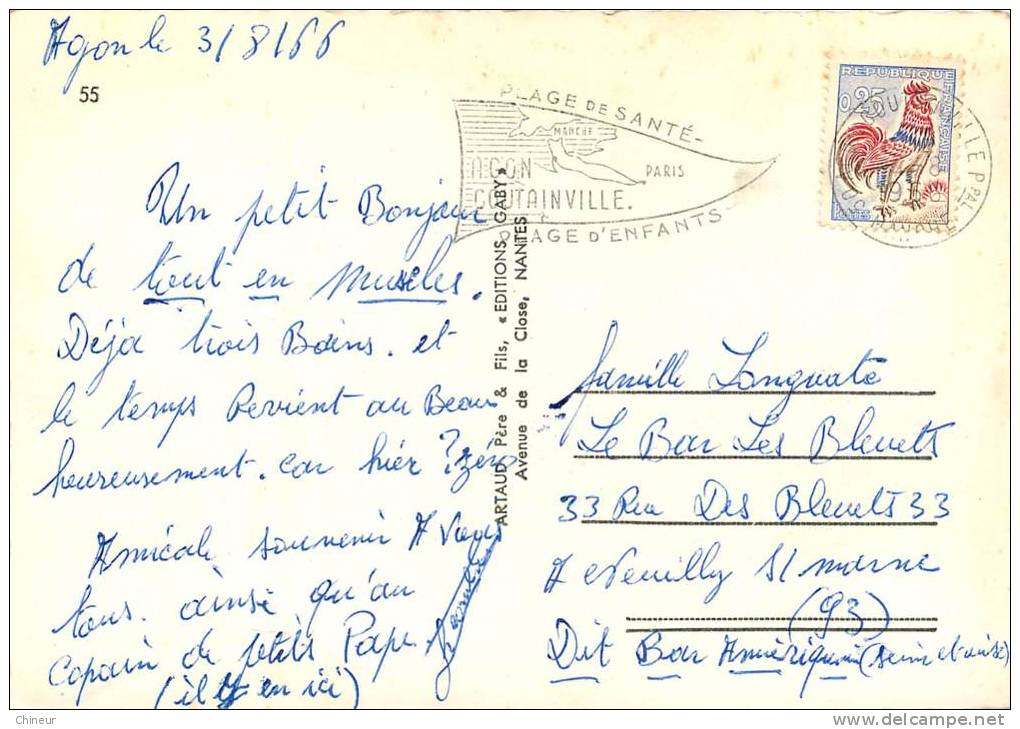 Agon le 3/8/66
55
Un petit Bonjour
de tout en muscles.
Déja trois Bains. et
le temps Revient au Beau
heureusement. car hier ? zéro
Amicale souvenir A vous
tous. ainsi qu'au
copain de petits Pape
(il y en ici)
PLAGE DE SANTÉ-
MANCHE
PARIS
AGON
COUTAINVILLE.
PLAGE D'ENFANTS-
ARTAUD Père & Fils, « EDITIONS GABY »
Avenue de la Close, NANTES
REPUBLIQUE FRANÇAISE
0,25
famille Languate
Le Bar Les Bleuets
33 Rue Des Bleuets 33
A Neuilly S/ marne
(93)
Dit Bar Amériquain (seine et oise)
Chineur
delcampe.net